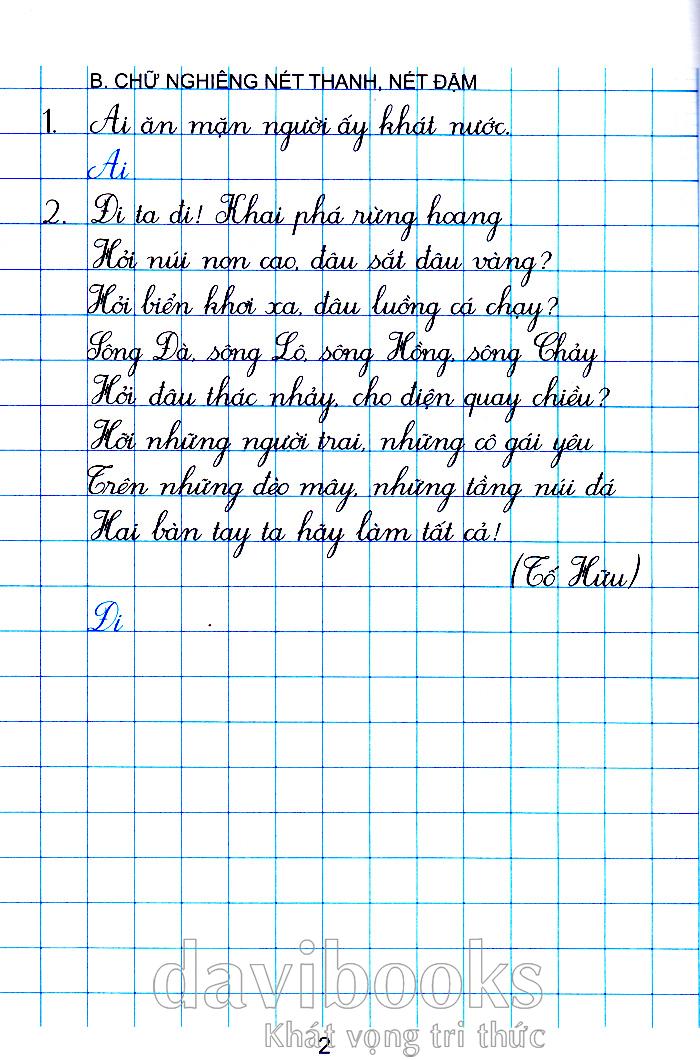 B. CHỮ NGHIÊNG NÉT THANH, NÉT ĐẬM
1. Ai ăn mặn người ấy khát nước.
Ai
2. Đi ta đi! Khai phá rừng hoang
Hỏi núi non cao, đâu sắt đâu vàng?
Hỏi biển khơi xa, đâu luồng cá chạy?
Sông Đà, sông Lô, sông Hồng, sông Chảy
Hỏi đâu thác nhảy, cho điện quay chiều?
Hỡi những người trai, những cô gái yêu
Trên những đèo mây, những tầng núi đá
Hai bàn tay ta hãy làm tất cả!
(Tố Hữu)
Đi
davibooks
Khát vọng tri thức
2